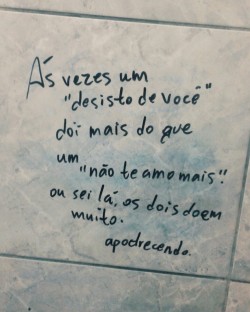 Ás vezes um
"desisto de você"
doi mais do que
um "não te amo mais".
ou sei lá, os dois doem
muito.
apodrecendo.